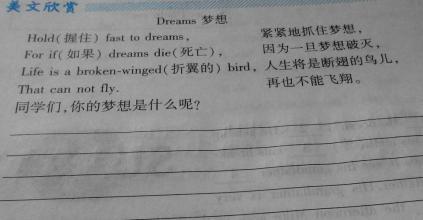 美文欣赏
Dreams 梦想
Hold(握住) fast to dreams,
For if(如果) dreams die(死亡),
Life is a broken-winged(折翼的) bird,
That can not fly.
紧紧地抓住梦想,
因为一旦梦想破灭,
人生将是断翅的鸟儿,
再也不能飞翔。
同学们,你的梦想是什么呢?